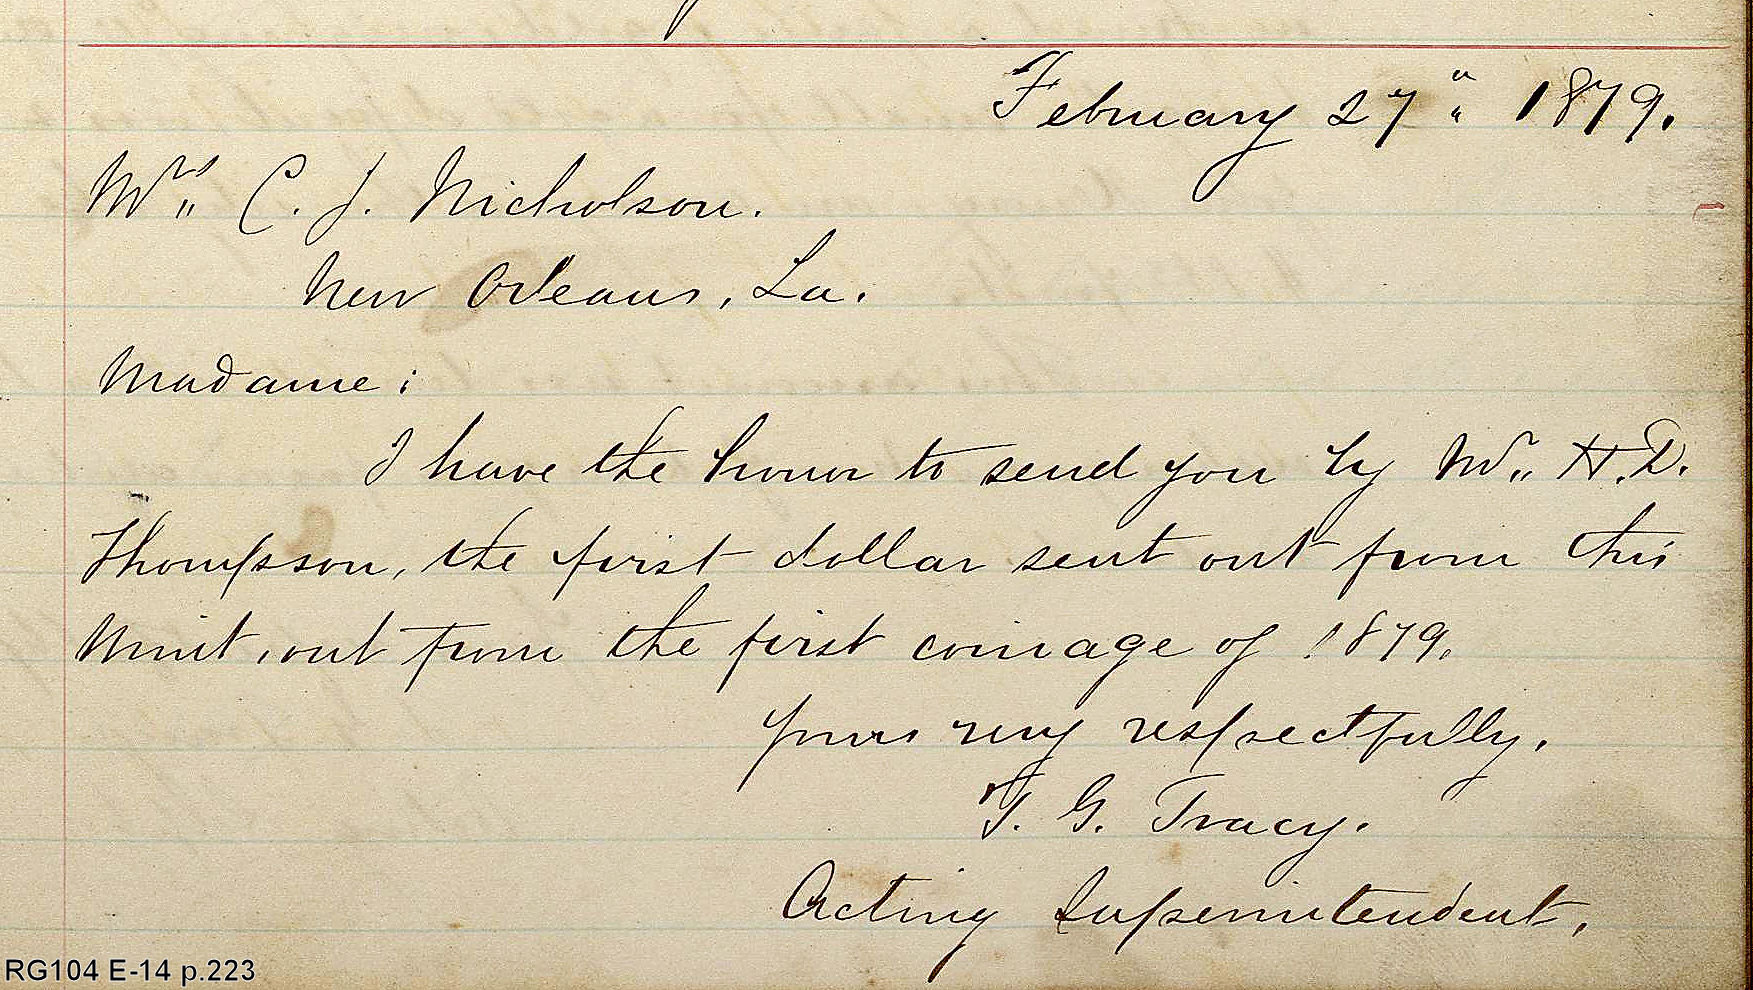 February 27" 1879.
Mrs. C. J. Nicholson.
New Orleans, La.
Madame:
I have the honor to send you by Mr. H. D.
Thompson, the first dollar sent out from this
Mint, out from the first coinage of 1879.
Yours very respectfully,
T. G. Tracy.
Acting Superintendent,
RG104 E-14 p.223